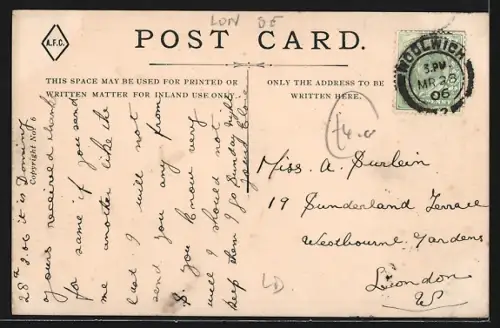 LON SE
A.F.C.
POST CARD.
THIS SPACE MAY BE USED FOR PRINTED OR
WRITTEN MATTER FOR INLAND USE ONLY.
ONLY THE ADDRESS TO BE
WRITTEN HERE.
WOOLWICH
3.PM
MR 28
06
Copyright No. 6
28th 3.06 it is Domino
yours received thanks
for same if you send
me another like the
last I will not
send you any from
& you know very
well I should not
keep them I go Sunday night
£4.00
Miss. A.
19 Sunderland Terrace
Westbourne Gardens
London
W
LD